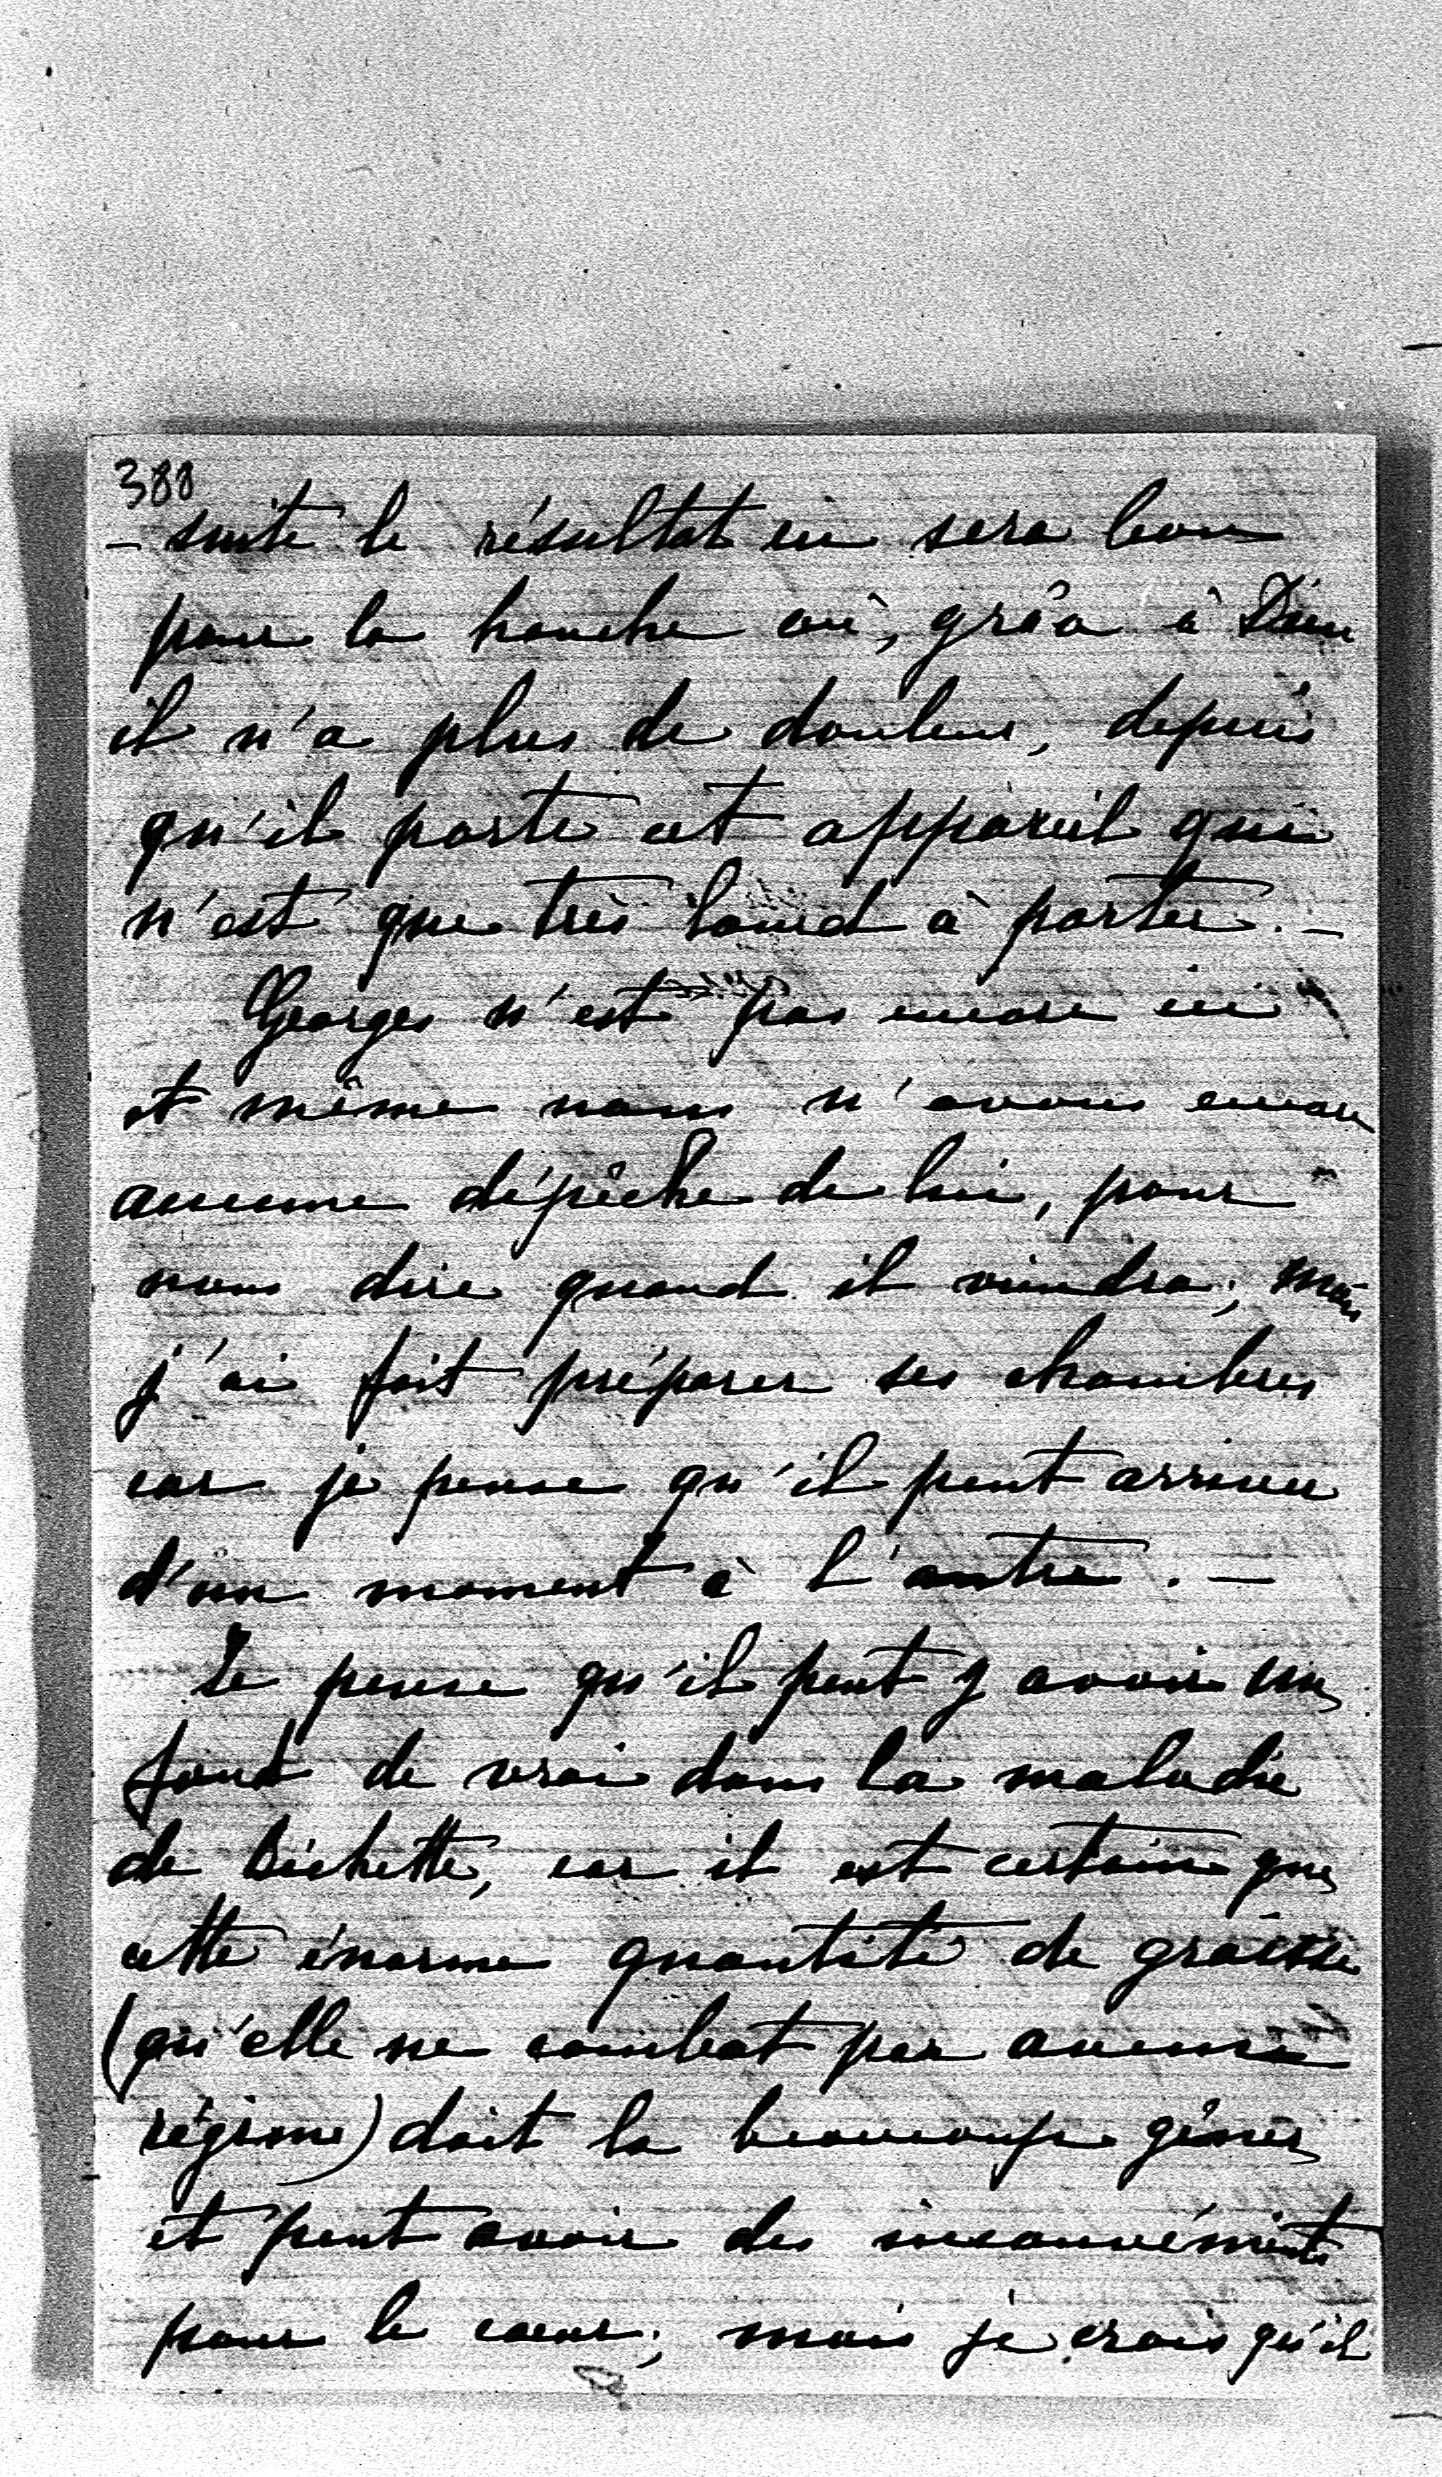 388
- suite le résultat en sera bon
pour la hanche où, grâce à Dieu
il n'a plus de douleur, depuis
qu'il porte cet appareil qui
n'est que très lourd à porter. -
Georges n'est pas encore ici
et même nous n'avons encore
aucune dépêche de lui, pour
nous dire quand il viendra; mais
j'ai fait préparer ses chambres
car je pense qu'il peut arriver
d'un moment à l'autre. -
Je pense qu'il peut y avoir un
fond de vrai dans la maladie
de Bichette, car il est certain que
cette énorme quantité de graisse
(qu'elle ne combat par aucun
régime) doit la beaucoup gêner
et peut avoir des inconvénients
pour le cœur; mais je crois qu'il